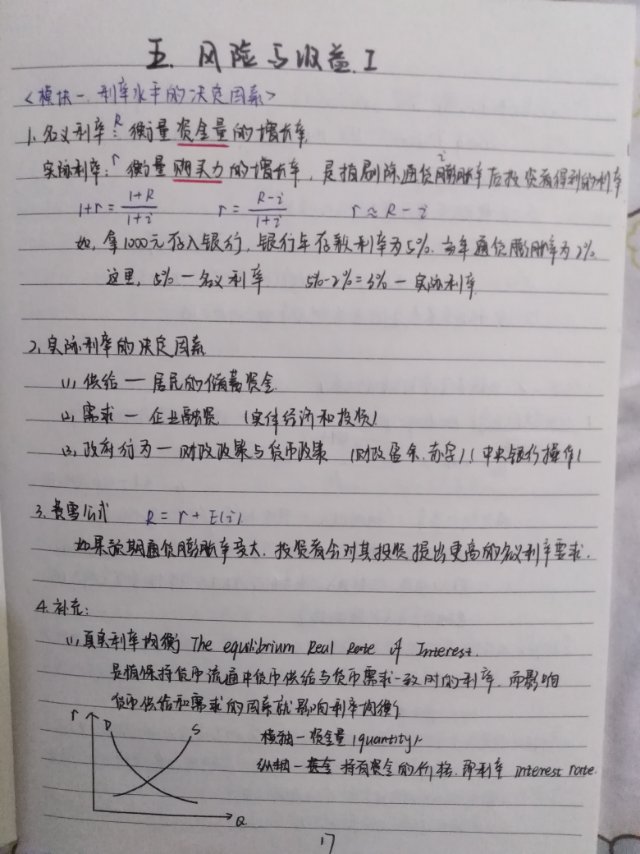 五. 风险与收益 I
<模块一. 利率水平的决定因素>
1. 名义利率: R 衡量资金量的增长率
实际利率: r 衡量购买力的增长率, 是指剔除通货膨胀率 i 后投资者得利的利率
1+r = (1+R)/(1+i)  r = (R-i)/(1+i)  r ≈ R - i
如, 拿1000元存入银行, 银行年存款利率为5%, 当年通货膨胀率为2%
这里, 5% — 名义利率  5%-2%=3% — 实际利率
2. 实际利率的决定因素
(1) 供给 — 居民的储蓄资金
(2) 需求 — 企业融资 (实体经济和投资)
(3) 政府行为 — 财政政策与货币政策 (财政盈余, 赤字) (中央银行操作)
3. 费雪公式  R = r + E(i)
如果预期通货膨胀率变大, 投资者会对其投资提出更高的名义利率要求.
4. 补充:
(1) 真实利率均衡 The equilibrium Real Rate of Interest.
是指保持货币流通中货币供给与货币需求一致时的利率. 而影响
货币供给和需求的因素就影响利率均衡
r D S
横轴 — 资金量 (quantity)
纵轴 — 持有资金的价格. 即利率 interest rate.
Q
17